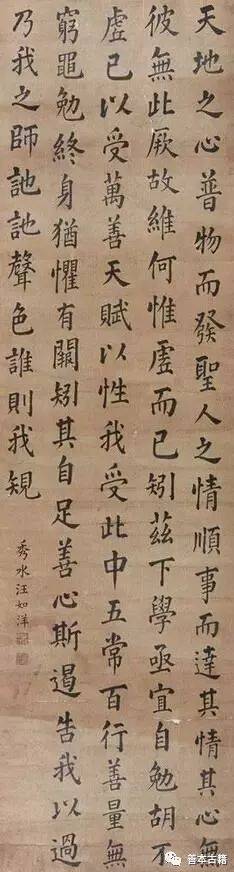 天地之心普物而發聖人之情順事而達其情其心無
彼無此厥故維何惟虛而已矧茲下學亟宜自勉胡不
虛己以受萬善天賦以性我受此中五常百行善量無
窮黽勉終身猶懼有闕矧其自足善心斯遏告我以過
乃我之師訑訑聲色誰則我規
秀水汪如洋
善本古籍